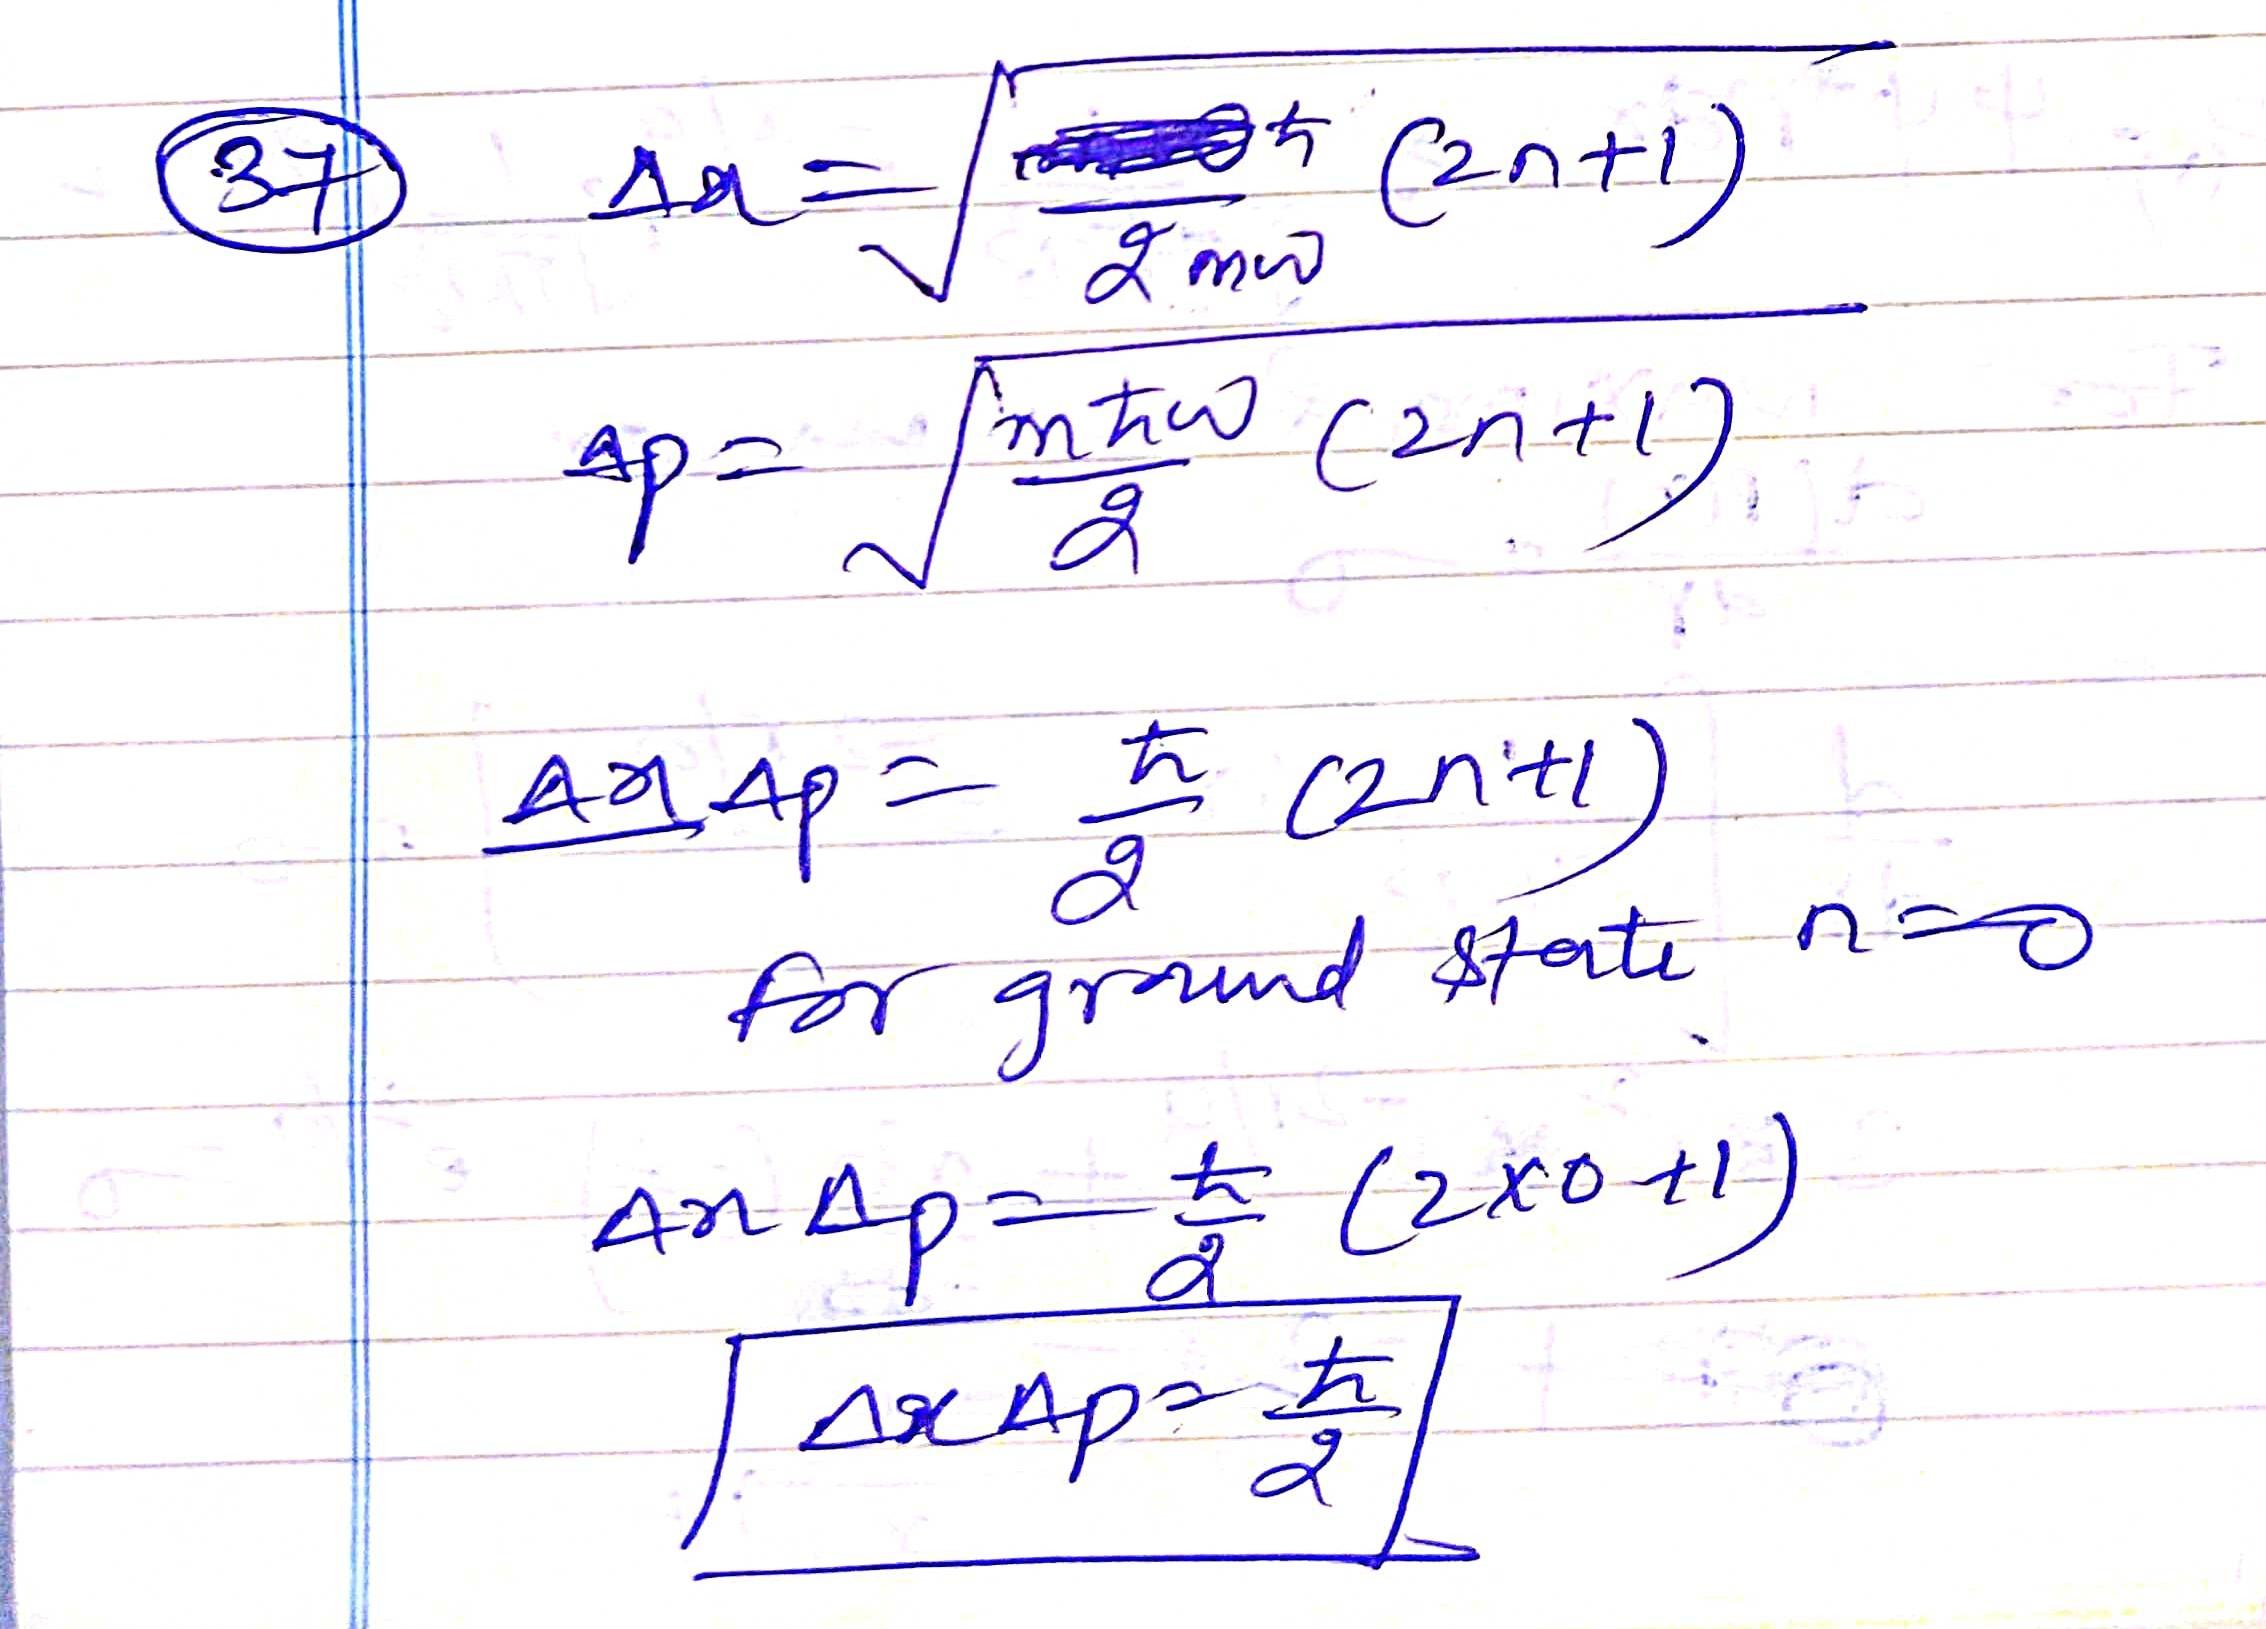 37 Δx = √(ħ/2mω (2n+1))
Δp = √(mħω/2 (2n+1))
Δx Δp = ħ/2 (2n+1)
for ground state n=0
Δx Δp = ħ/2 (2×0+1)
Δx Δp = ħ/2